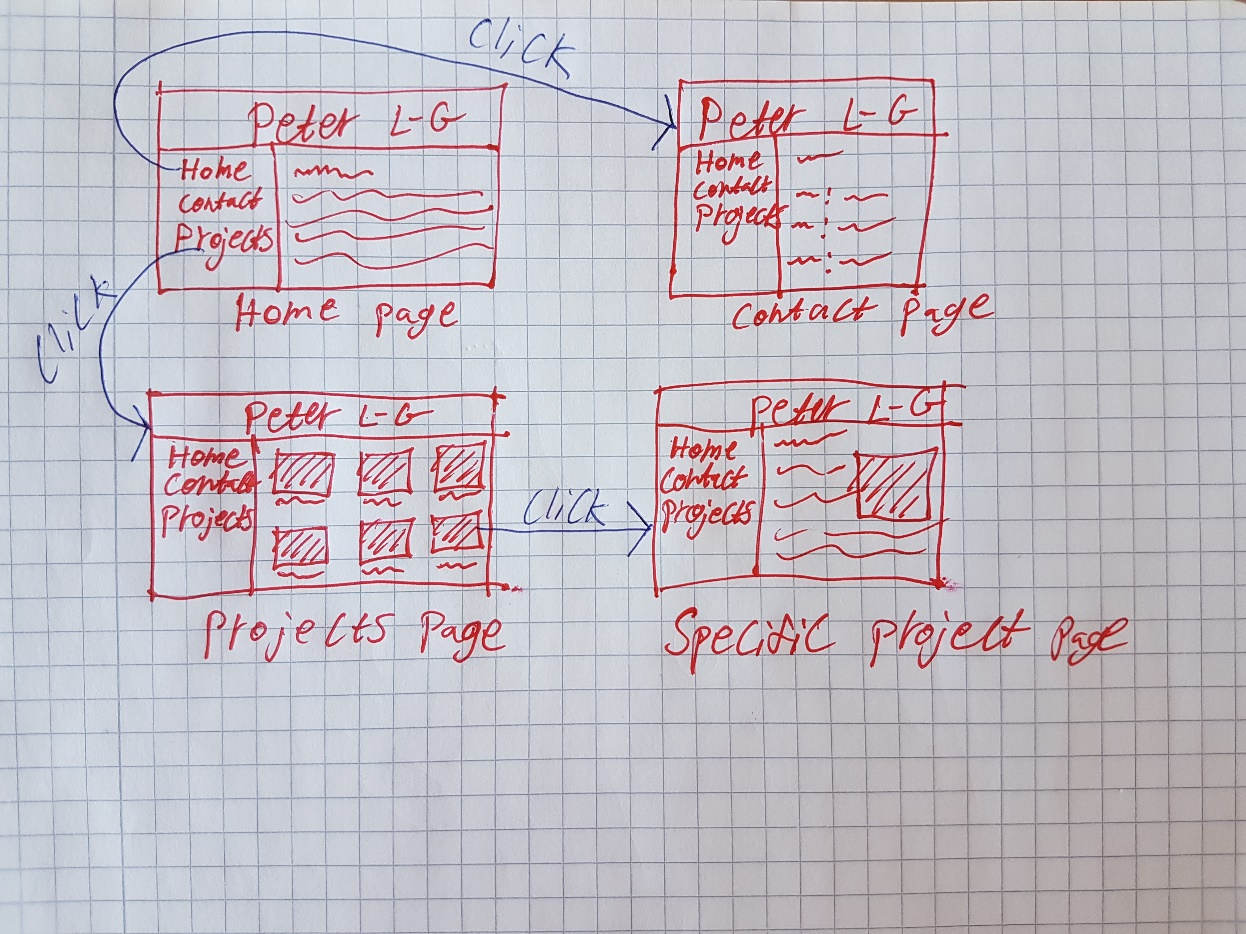 Click
Peter L-G
Home
Contact
Projects
Home page
Peter L-G
Home
Contact
Projects
Contact Page
Click
Peter L-G
Home
Contact
Projects
Projects Page
Click
Peter L-G
Home
Contact
Projects
Specific project Page